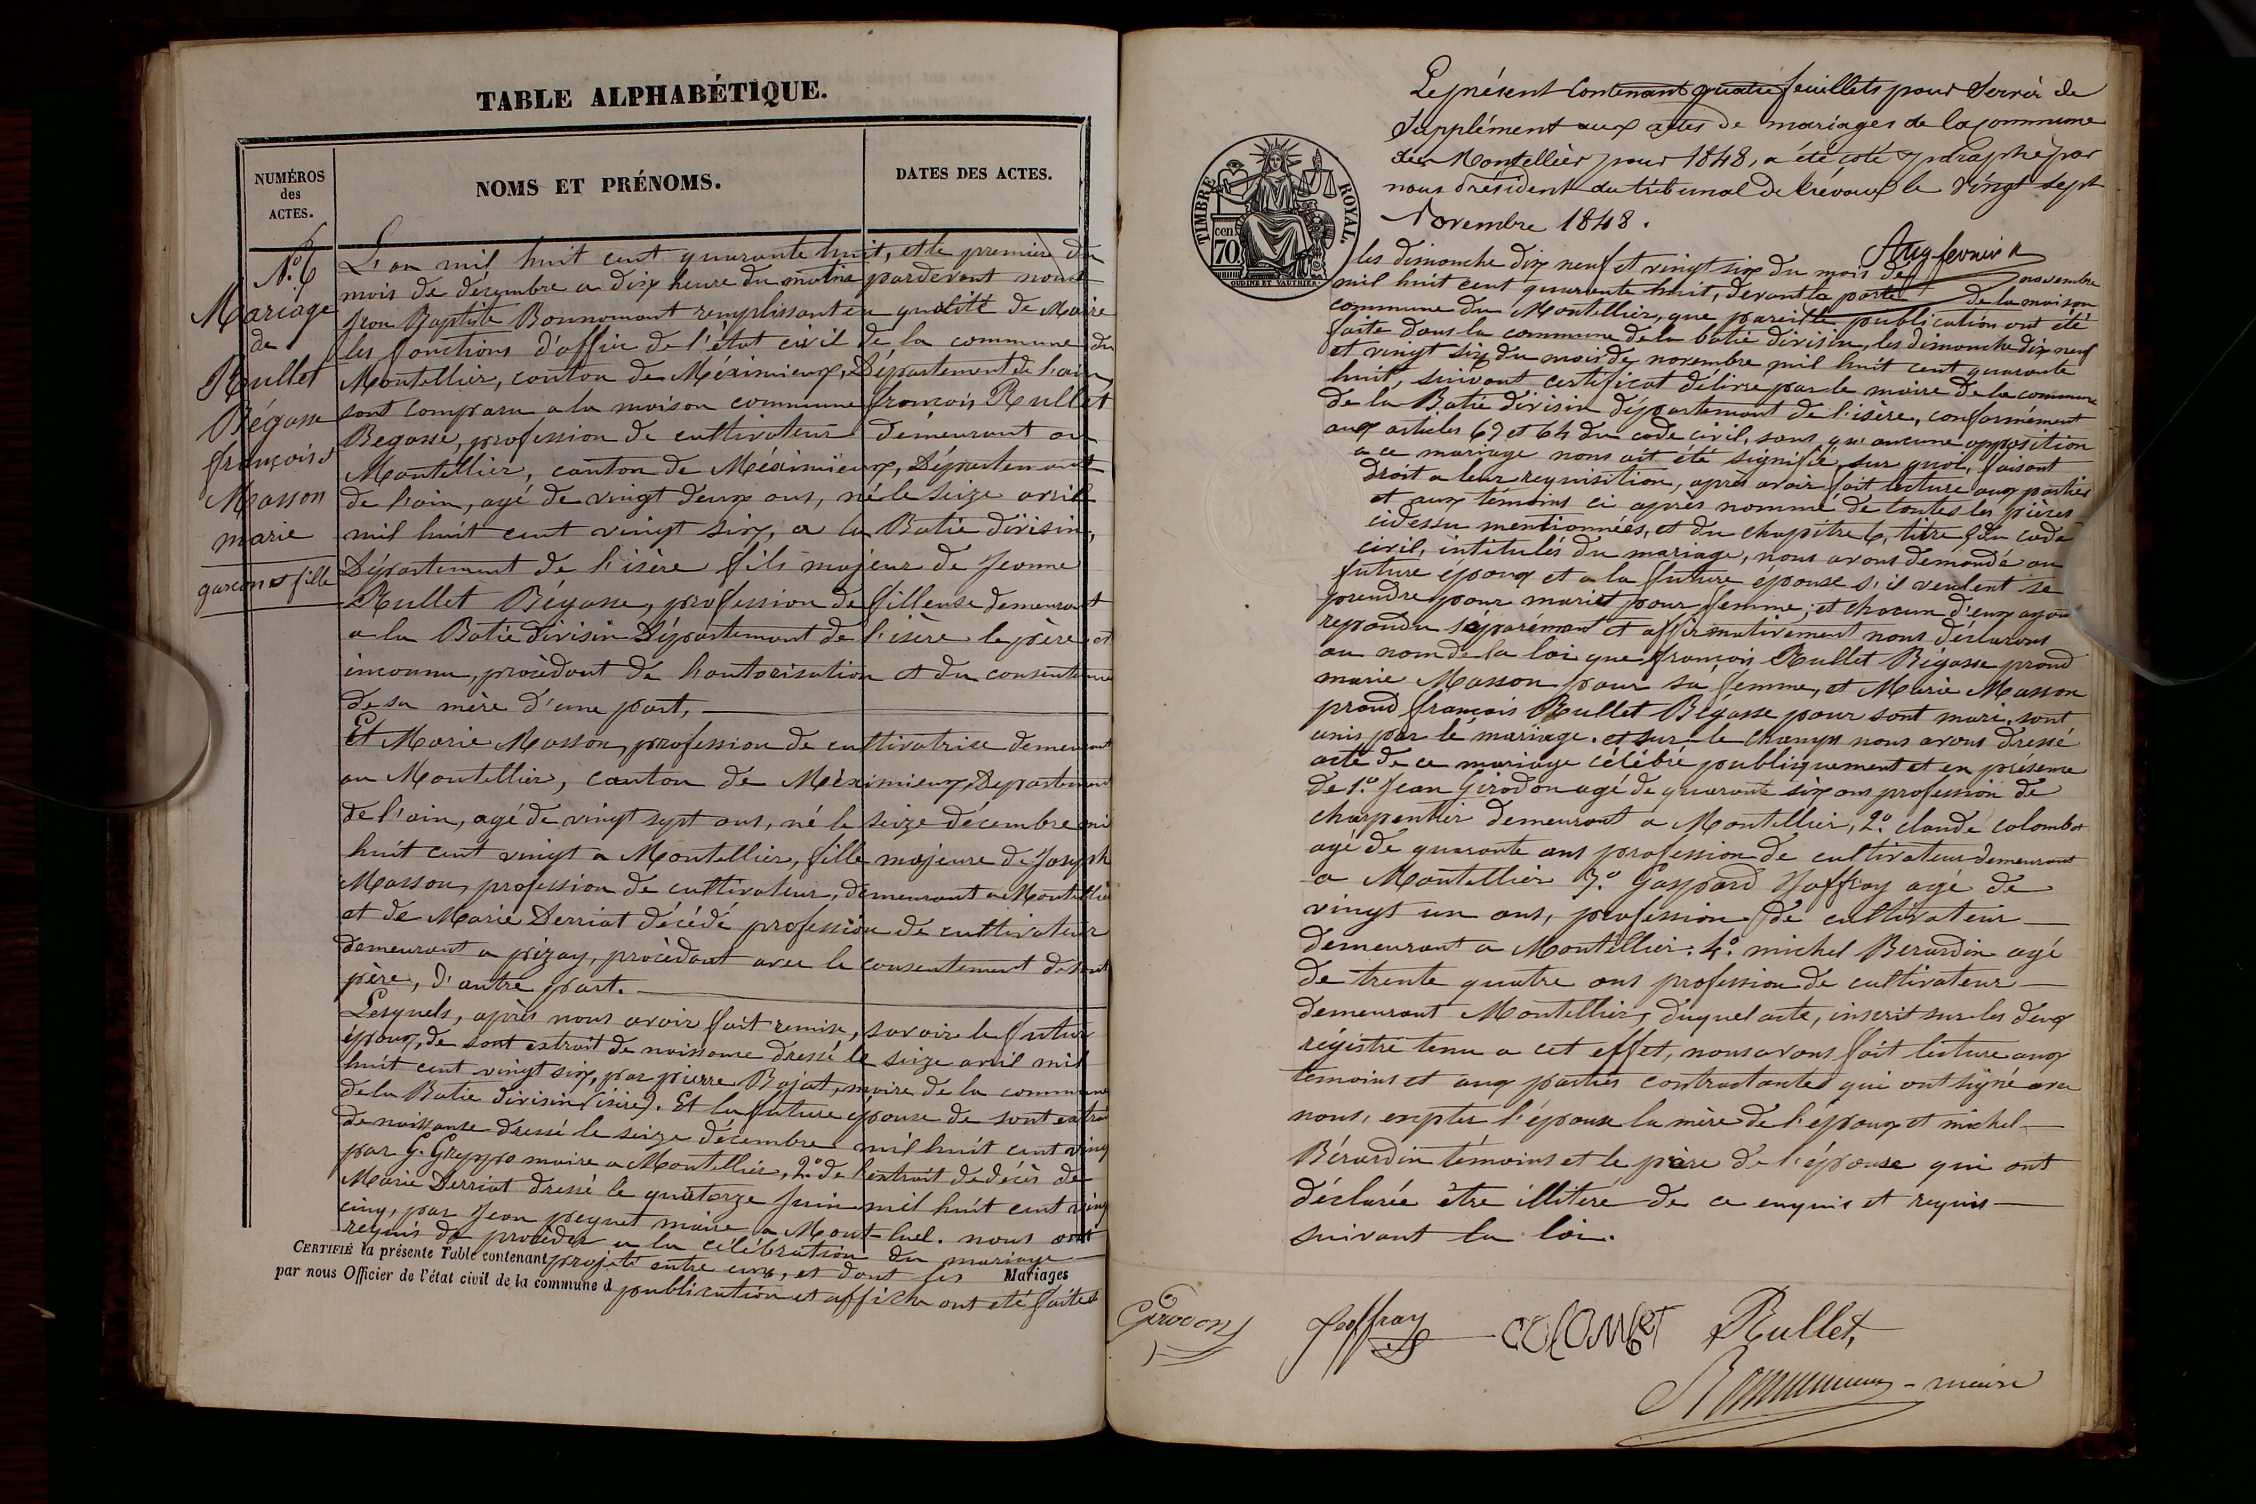 TABLE ALPHABÉTIQUE.
NUMÉROS
des
ACTES.
NOMS ET PRÉNOMS.
DATES DES ACTES.
N° 6
Mariage
de
Rullet
Bégasse
françois et
Masson
marie
garçon et fille
L'an mil huit cent quarante huit, et le premier du
mois de désembre a dix heure du matin pardevant nous
Jean Baptiste Bonnomant remplissant en qualité de Maire
les fonctions d'officie de l'état civil de la commune du
Montellier, canton de Méximieux, Département de l'ain,
sont comparu a la maison commune françois Rullet
Begasse, profession de cultivateur demeurant au
Montellier, canton de Méximieux, Département
de l'ain, agé de vingt deux ans, né le seize avril
mil huit cent vingt six, a la Batie divisin,
Département de l'isère fils majeur de Jeanne
Rullet Bégasse, profession de filleuse demeurant
a la Batie divisin Département de l'isère le père et
inconnu, procèdant de l'autorisation et du consenteme
de sa mère d'une part,
Et Marie Masson, profession de cultivatrise demeurant
au Montellier, canton de Méximieux, Departement
de l'ain, agé de vingt sept ans, né le seize décembre mi
huit cent vingt a Montellier, fille majeure de Joseph
Masson, profession de cultivateur, demeurant a Montellier
et de Marie Derriat décédé profession de cultivateur
demeurant a pizay, procèdant avec le consentement de sont
père, d'autre part.
Lesquels, après nous avoir fait remise, savoir le futur
époux, de sont extrait de naissance dressé le seize avril mil
huit cent vingt six, par pierre Bajat, maire de la commune
de la Batie divisin (isère). Et la future épouse de sont extrai
de naissanse dressé le seize décembre mil huit cent ving
par G. Greppo maire a Montellier, 2° de l'extrait de décès de
Marie Derriat dressé le quatorze Juin mil huit cent ving
cinq, par Jean peguet maire a Mont-luel. nous ont
requis de procèder a la célébration du mariage
CERTIFIÉ la présente Table contenant projeté entre eux, et dont les Mariages
par nous Officier de l'état civil de la commune d publication et affiche ont été faites
Le présent contenant quatre feuillets pour servir de
supplément aux actes de mariages de la commune
de Montellier pour 1848, a été coté & paraphé par
nous président du tribunal de trévoux le vingt sept
Novembre 1848.
TIMBRE ROYAL.
70 cen
OUDINÉ ET VAUTHIER
les dimanche dix neuf et vingt six du mois de novembre
mil huit cent quarante huit, devant la porte de la maison
commune du Montellier, que pareille publication ont été
faite dans la commune de la batie divisin, les dimanche dix neuf
et vingt six du mois de novembre mil huit cent quarante
huit, suivant certificat délivré par le maire de la commune
de la Batie divisin département de l'isère, conformément
aux articles 63 et 64 du code civil, sans qu'aucune opposition
a ce mariage nous ait été signifié, sur quoi, faisant
droit a leur requisition, après avoir fait lecture aux parties
et aux témoins ci après nommé de toutes les pièces
cidessu mentionnées, et du chapitre 6, titre 5 du code
civil, intitulés du mariage, nous avons demandé au
future époux et a la future épouse s'il veulent se
prendre pour mari et pour femme; et chacun d'eux ayan
repondu séparément et affirmativement nous déclarons
au nom de la loi que françois Rullet Bégasse prend
marie Masson pour sa femme, et Marie Masson
prend françois Rullet Begasse pour sont mari, sont
unis par le mariage. et sur le champs nous avons dressé
acte de ce mariage célébré publiquement et en présence
de 1° Jean Girodon agé de quarante six ans profession de
charpentier demeurant a Montellier, 2° claude colombet
agé de quarante ans profession de cultivateur demeurant
a Montellier 3° Gaspard Jaffray agé de
vingt un ans, profession de cultivateur
demeurant a Montellier. 4° michel Berardin agé
de trente quatre ans profession de cultivateur
demeurant Montellier, duquel acte, inscrit sur les deux
régistre tenu a cet effet, nous avons fait lecture aux
témoins et aux parties contractantes qui ont signé avec
nous, excpter l'épouse la mère de l'époux et michel
Bérardin témoins et le père de l'épouse qui ont
déclarée être illiteré de ce enquis et requis
suivant la loi.
Girodon Jeoffray COLOMBET Rullet,
maire